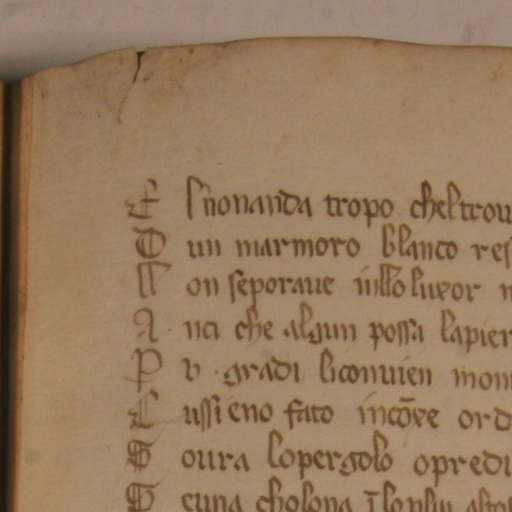 E l nonanda tropo chel trou
D un marmoro blanco res
N on se poraue in llo luxor
A nci che algun possa la pier
P u gradi li conuien mon
C ussi eno fato in cõxe ord
S oura lo pergolo o predi
S euna cholona